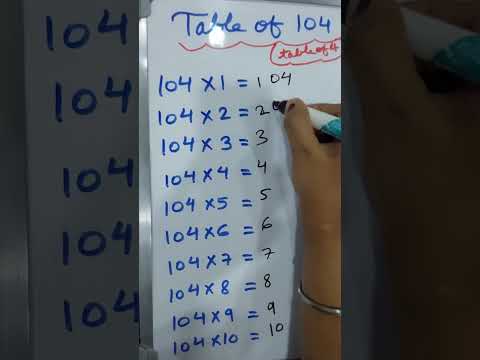 Table of 104
table of 4
104 × 1 = 104
104 × 2 = 20
104 × 3 = 3
104 × 4 = 4
104 × 5 = 5
104 × 6 = 6
104 × 7 = 7
104 × 8 = 8
104 × 9 = 9
104 × 10 = 10